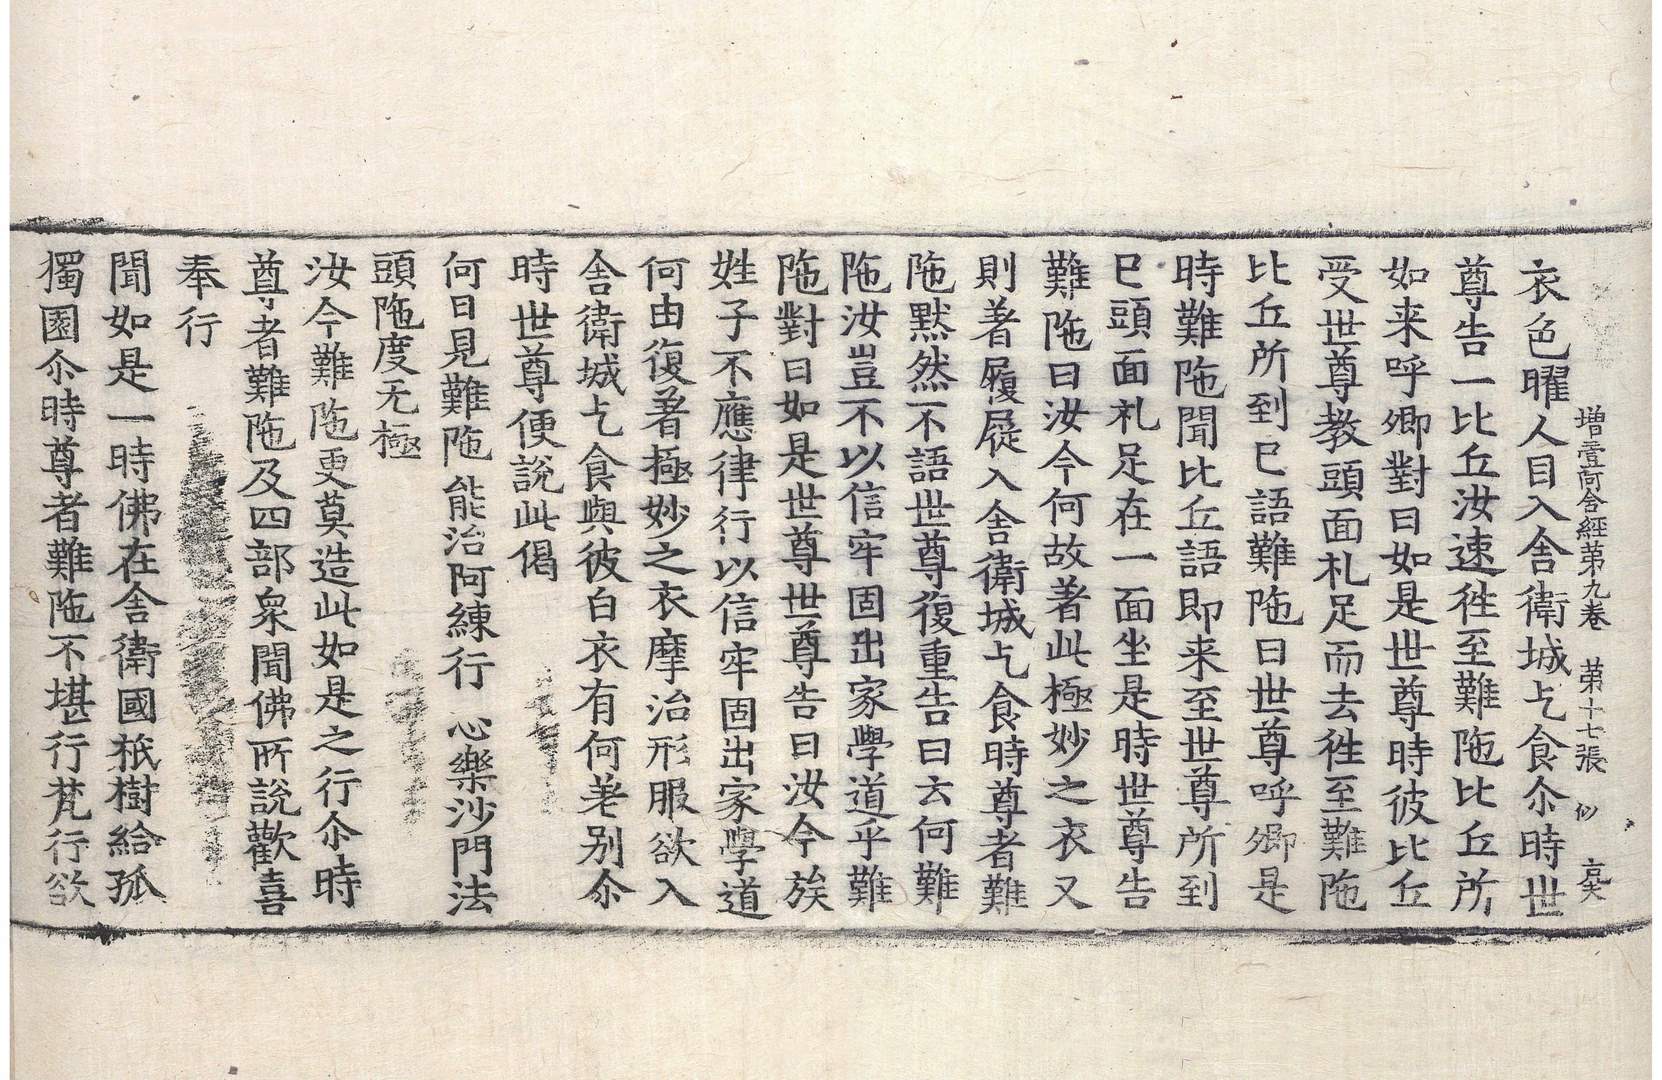 增壹阿含經第九卷 第十七張 似
衣色曜人目入舍衛城乞食尒時世
尊告一比丘汝速徃至難陁比丘所
如来呼卿對曰如是世尊時彼比丘
受世尊教頭面礼足而去徃至難陁
比丘所到已語難陁曰世尊呼卿是
時難陁聞比丘語即来至世尊所到
已頭面礼足在一面坐是時世尊告
難陁曰汝今何故著此極妙之衣又
則著履屣入舍衛城乞食時尊者難
陁黙然不語世尊復重告曰云何難
陁汝豈不以信牢固出家學道乎難
陁對曰如是世尊世尊告曰汝今族
姓子不應律行以信牢固出家學道
何由復著極妙之衣摩治形服欲入
舍衛城乞食與彼白衣有何差别尒
時世尊便說此偈
何日見難陁 能治阿練行 心樂沙門法
頭陁度无極
汝今難陁更莫造此如是之行尒時
尊者難陁及四部衆聞佛所說歡喜
奉行
聞如是一時佛在舍衛國祇樹給孤
獨園尒時尊者難陁不堪行梵行欲